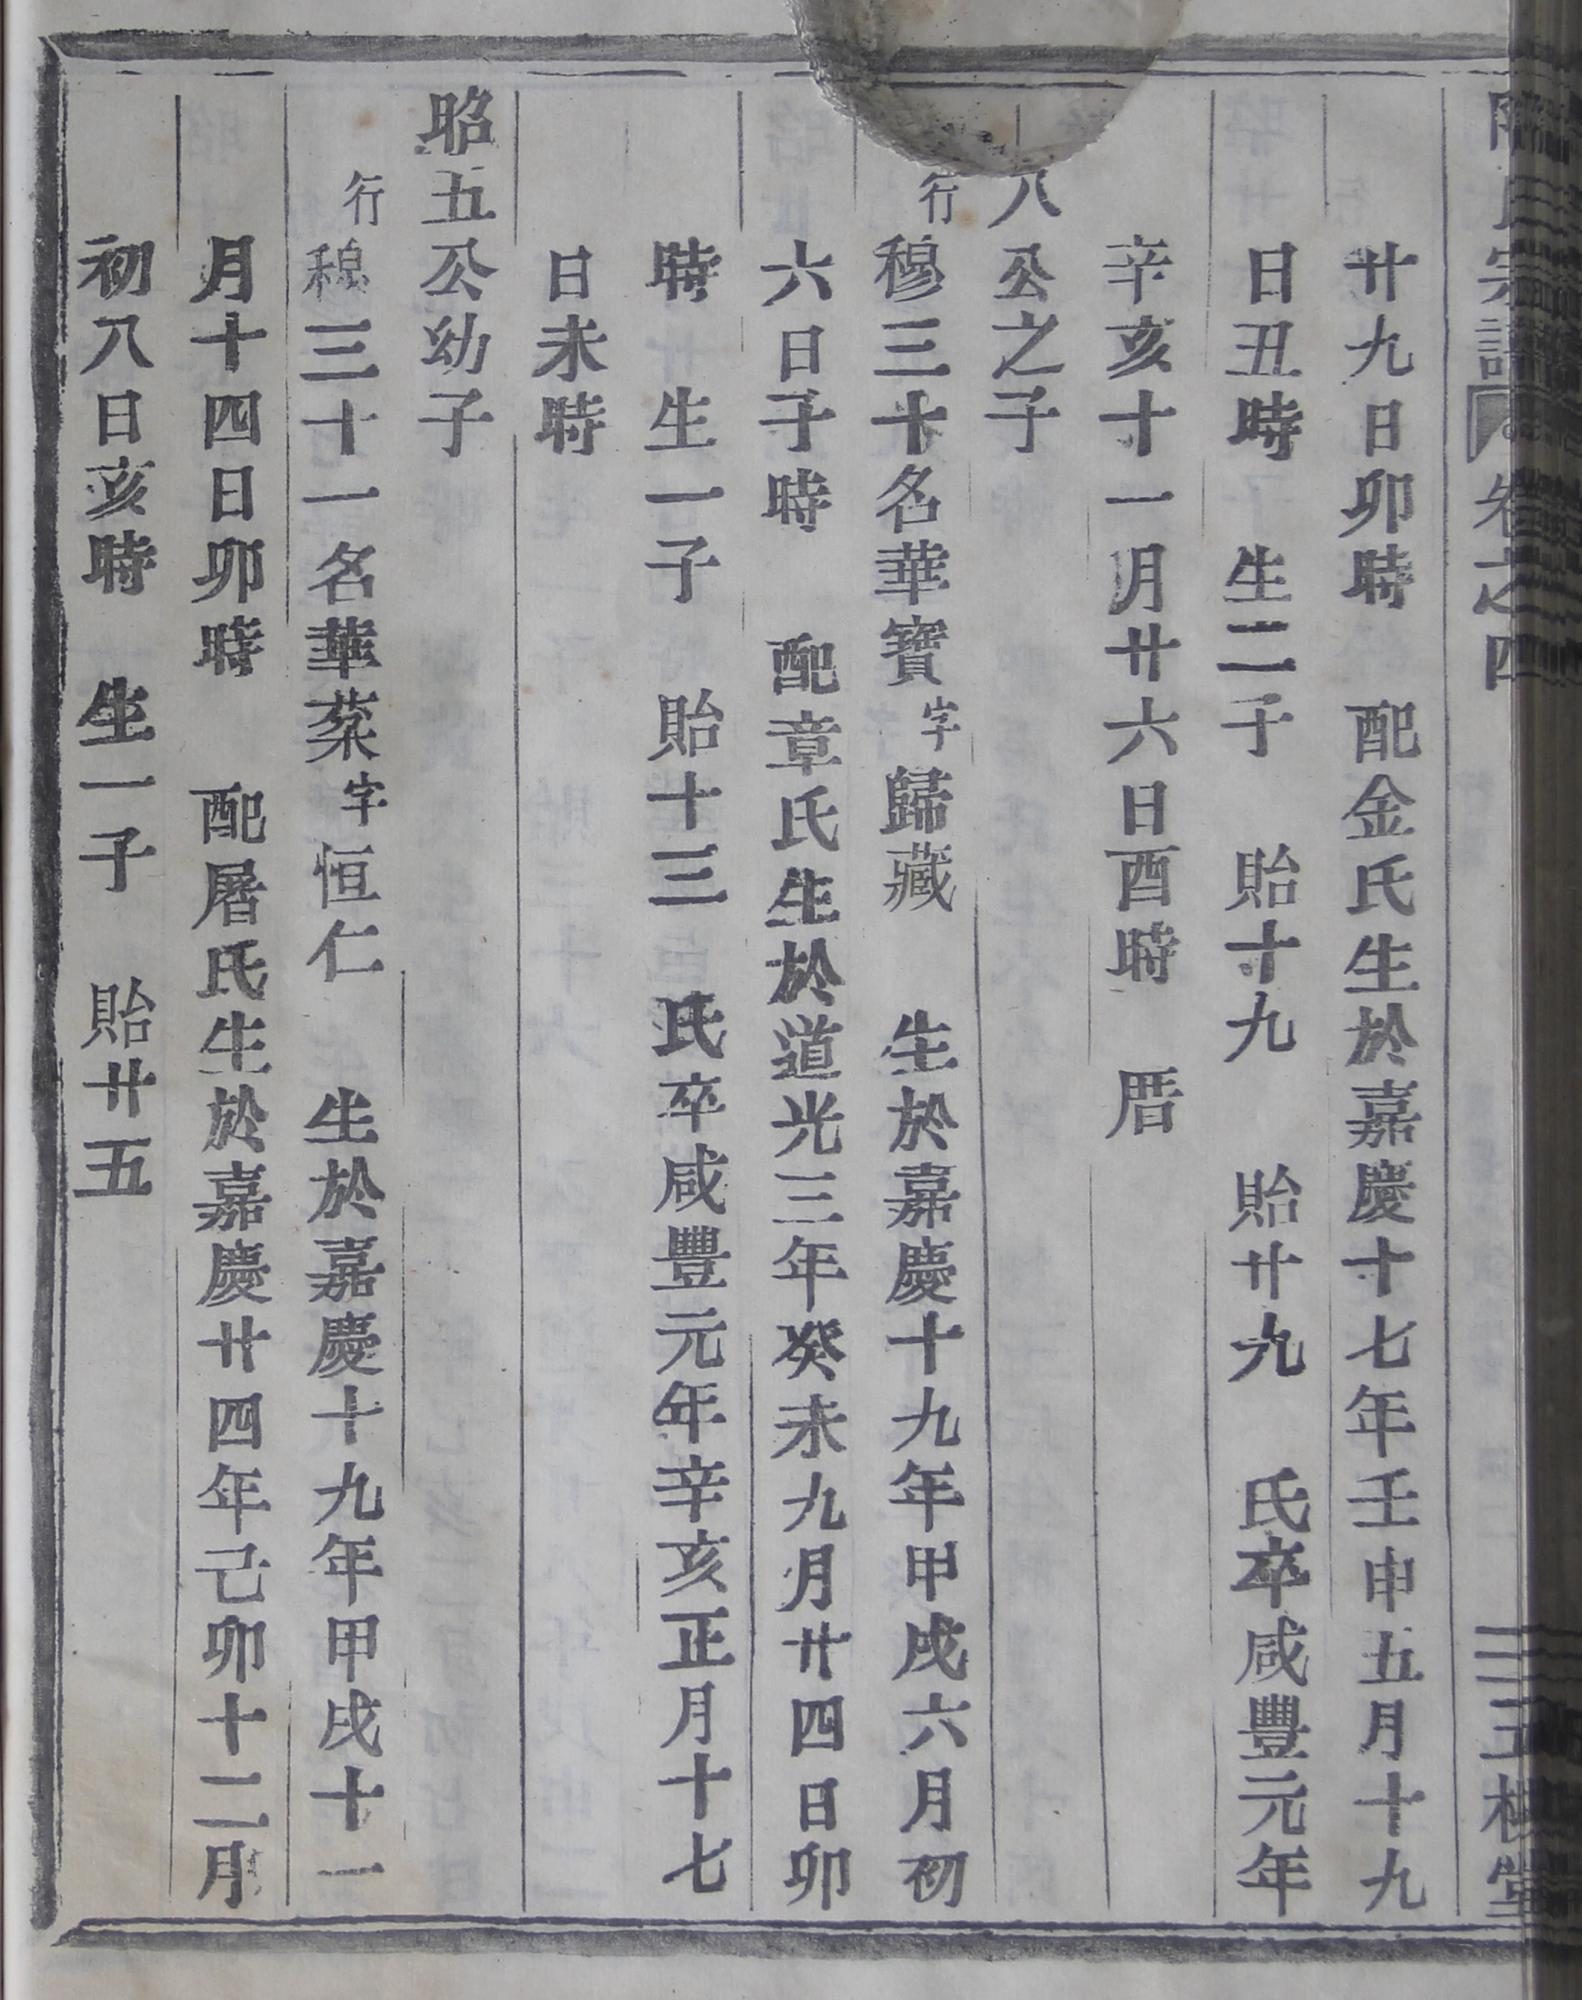 氏宗譜 卷之四 三槐堂
廿九日卯時 配金氏生於嘉慶十七年壬申五月十九
日丑時 生二子 貽十九 貽廿九 氏卒咸豐元年
辛亥十一月廿六日酉時 厝
八公之子
行穆三十名華寶字歸藏 生於嘉慶十九年甲戌六月初
六日子時 配章氏生於道光三年癸未九月廿四日卯
時 生一子 貽十三 氏卒咸豐元年辛亥正月十七
日未時
昭五公幼子
行穆三十一名華菜字恒仁 生於嘉慶十九年甲戌十一
月十四日卯時 配屠氏生於嘉慶廿四年己卯十二月
初八日亥時 生一子 貽廿五